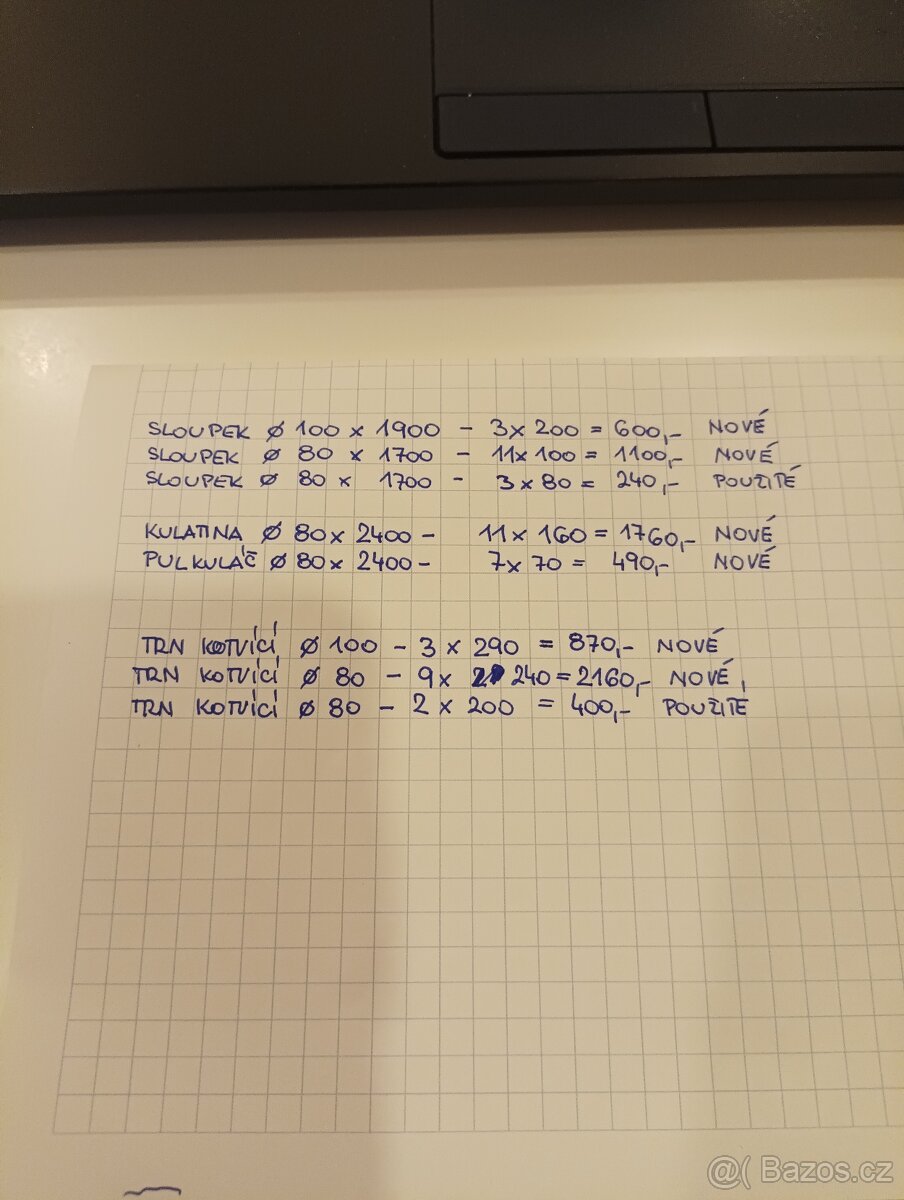 SLOUPEK ø 100 x 1900 - 3x 200 = 600,- NOVÉ
SLOUPEK ø 80 x 1700 - 11x 100 = 1100,- NOVÉ
SLOUPEK ø 80 x 1700 - 3 x 80 = 240,- POUŽITÉ
KULATINA ø 80 x 2400 - 11 x 160 = 1760,- NOVÉ
PULKULÁČ ø 80 x 2400 - 7x 70 = 490,- NOVÉ
TRN KOTVÍCÍ ø 100 - 3 x 290 = 870,- NOVÉ
TRN KOTVÍCÍ ø 80 - 9x 240 = 2160,- NOVÉ
TRN KOTVÍCÍ ø 80 - 2 x 200 = 400,- POUŽITÉ
@( Bazos.cz